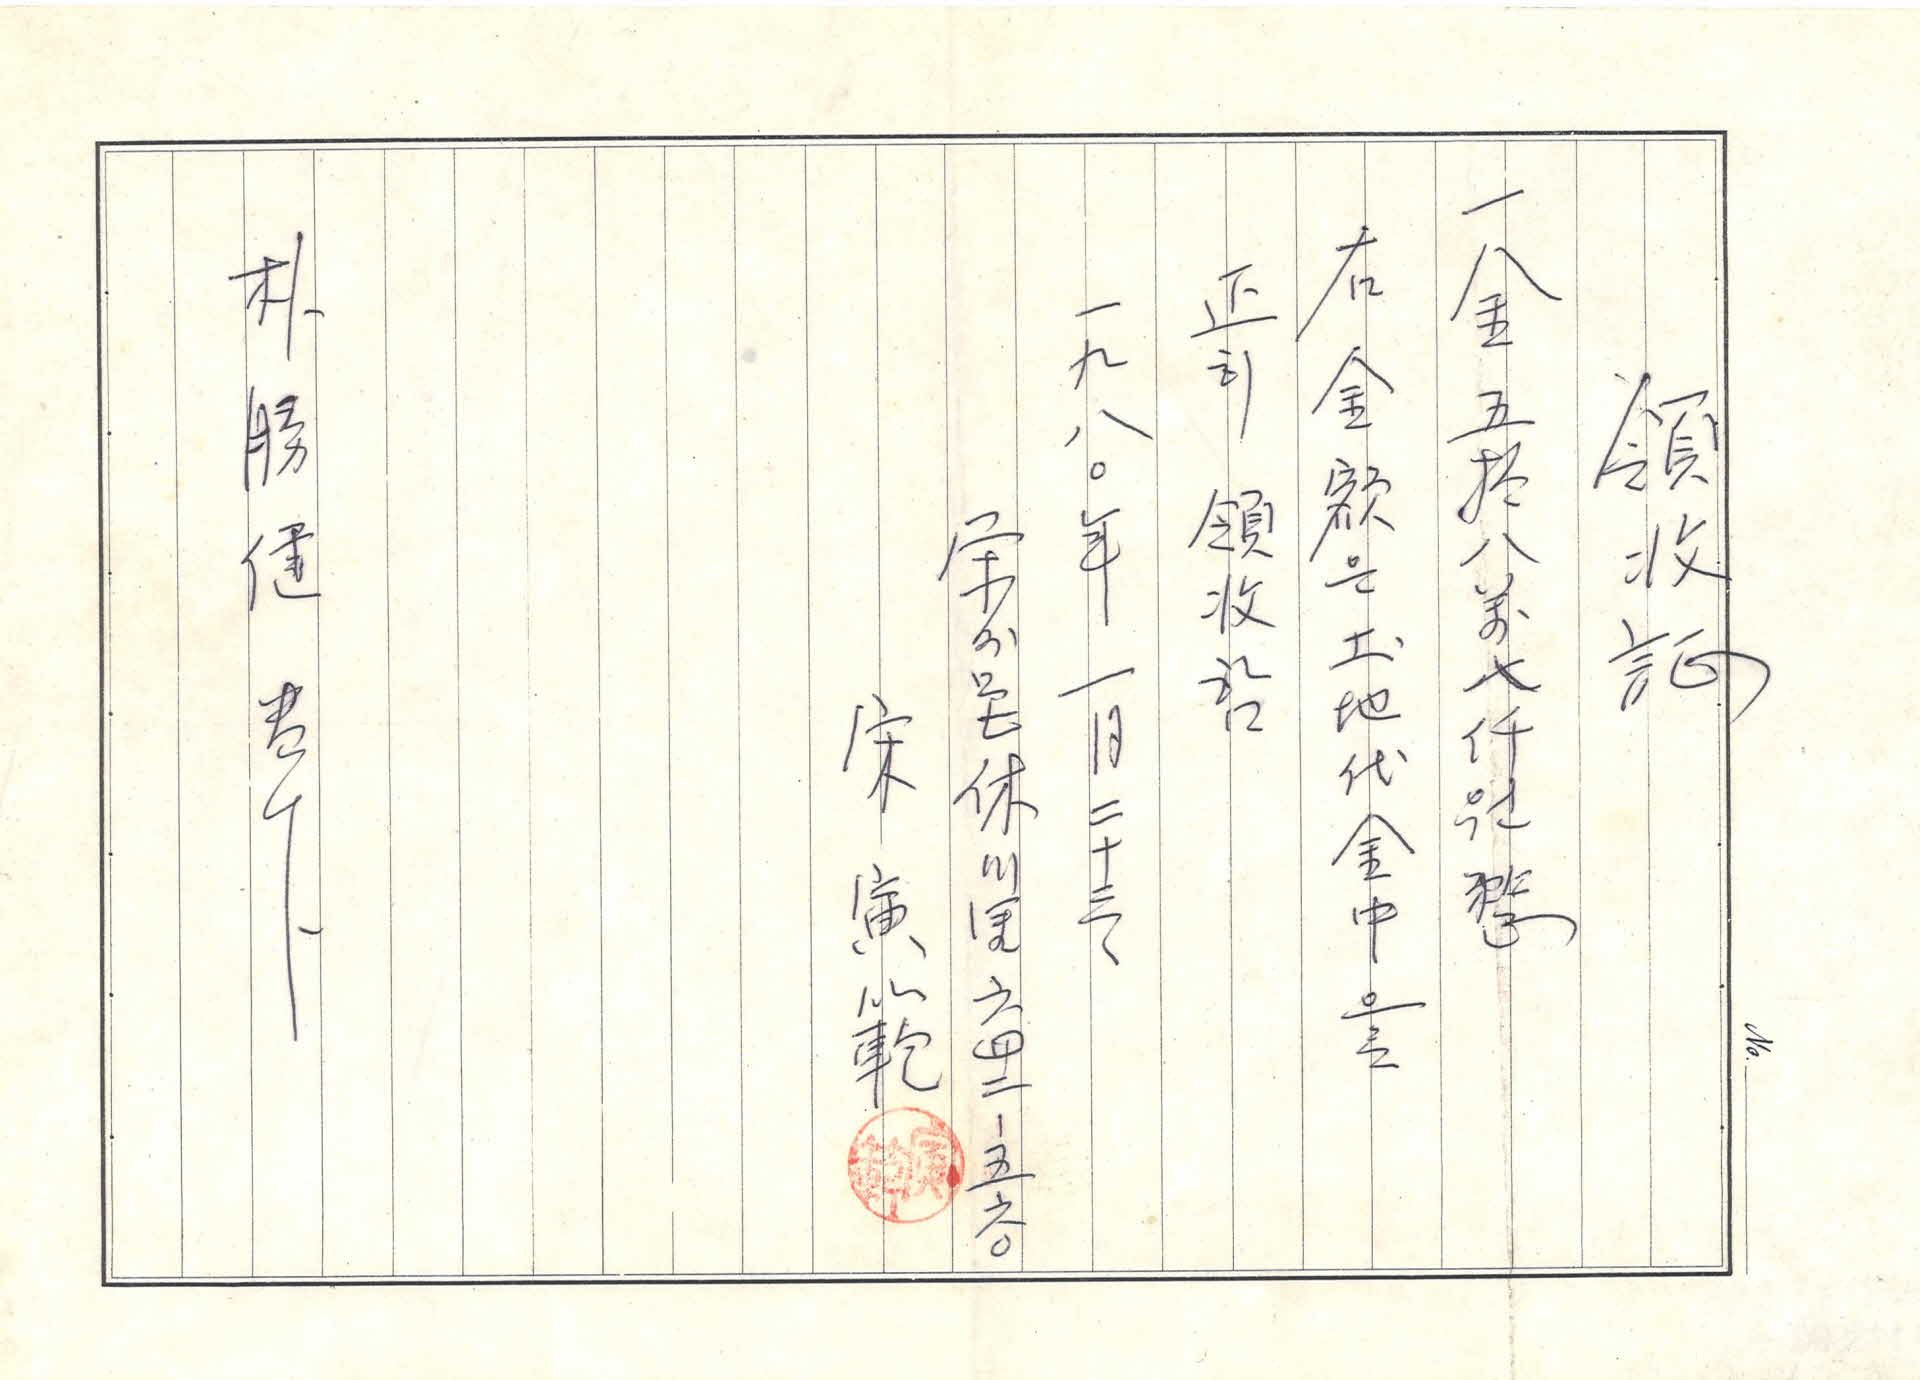 領收証
一金 五拾八萬七仟원整
右金額은 土地代金中을
正히 領收함
一九八〇年 一月 二十三日
榮州邑 休川里 六四二-五六〇
宋寅範
朴勝健 貴下
No.